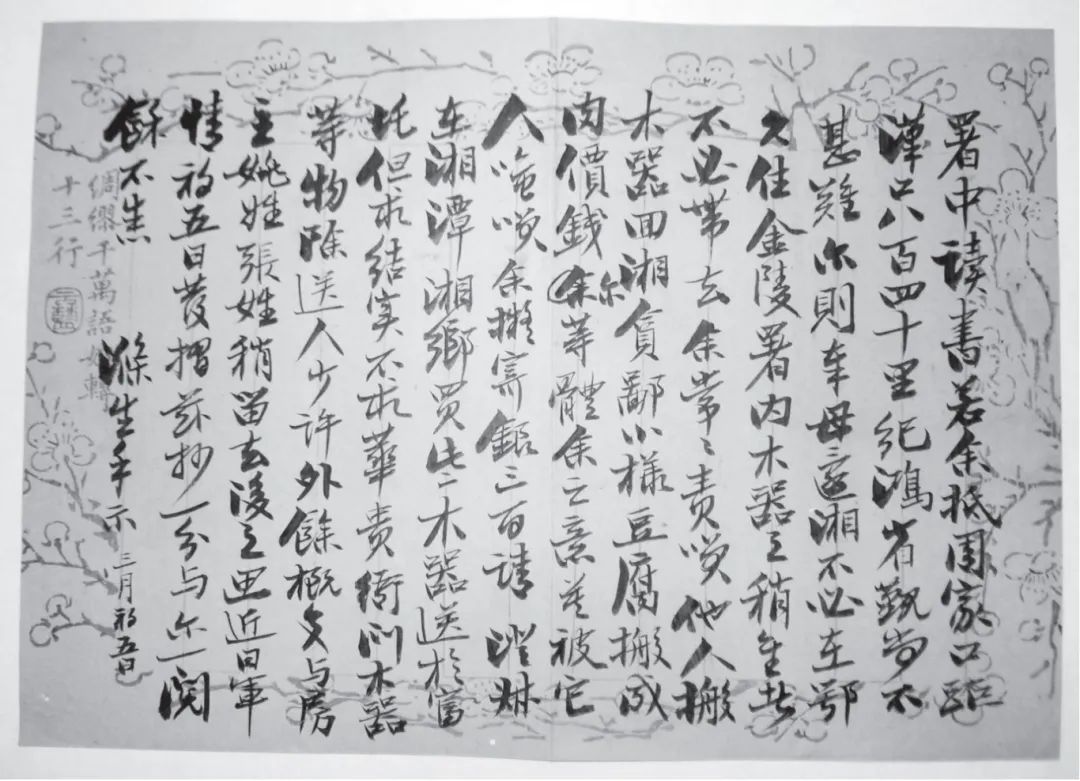 署中讀書若余抵周家口距
漢口八百四十里紀鴻省覲尚不
甚難尔則奉母還湘不必在鄂
久住金陵署内木器之稍佳者
不必帶去余常〻責笑他人搬
木器回湘貪鄙小樣豆腐搬成
肉價錢尔等體余之意莫被它
人嗤笑余擬寄銀三百請澄叔
在湘潭湘鄉買此木器送於富
圫但求結实不求華貴衙门木器
等物除送人少许外餘概交与房
主姚姓張姓稍留去後之思近日軍
情初五日發摺茲抄一分与尔一閱
餘不悉 滌生手示 三月初五日
綢繆千萬語
十三行